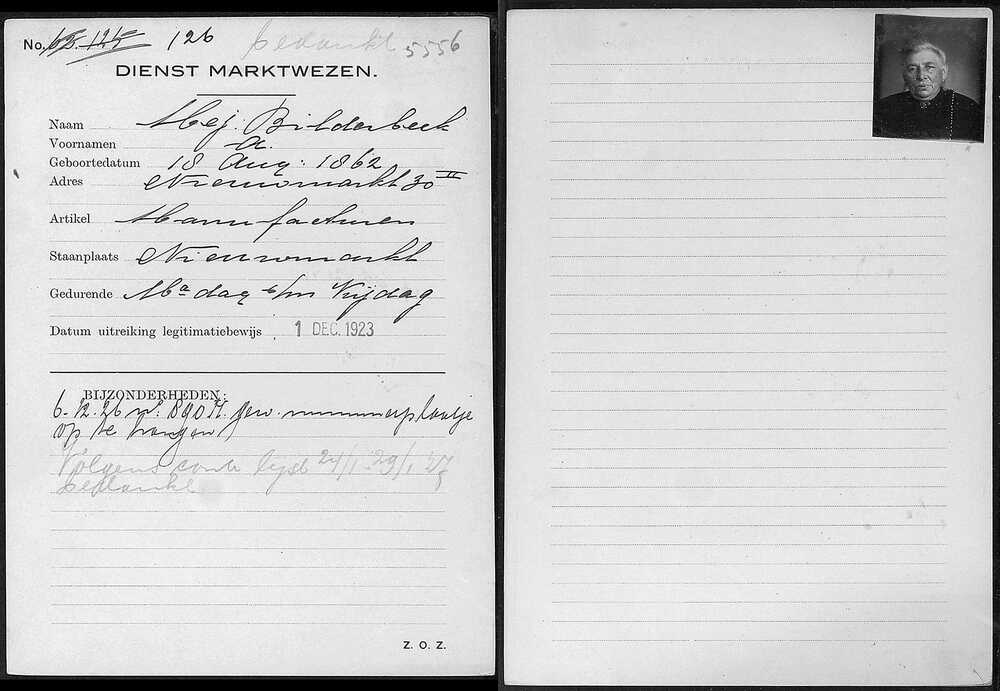 No. 62. 125 126 bedankt 5556
DIENST MARKTWEZEN.
Naam Mej. Bilderbeek
Voornamen A.
Geboortedatum 18 Aug: 1862
Adres Nieuwmarkt 30 II
Artikel Manufacturen
Staanplaats Nieuwmarkt
Gedurende Maandag t/m Vrijdag
Datum uitreiking legitimatiebewijs 1 DEC. 1923
BIJZONDERHEDEN:
6-12-26 nº: 890 M. gew. nummerplaatje
op te hangen
Volgens contr lijst 24/1-29/1 27
bedankt
Z. O. Z.